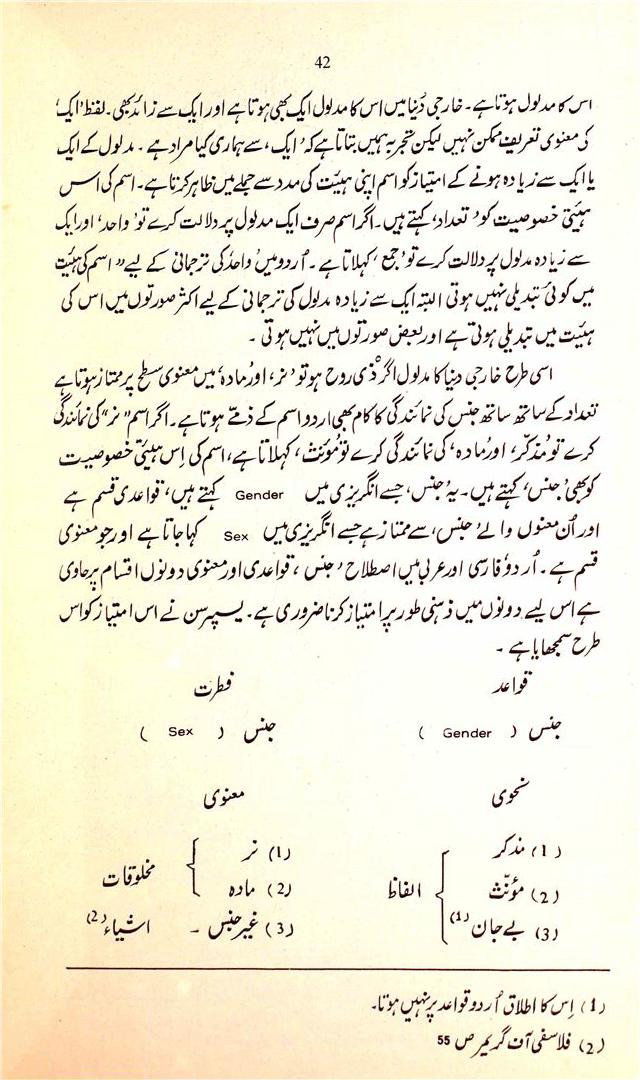 42
اس کا مدلول ہوتا ہے۔ خارجی دُنیا میں اس کا مدلول ایک بھی ہوتا ہے اور ایک سے زائد بھی۔ لفظ 'ایک'
کی معنوی تعریف ممکن نہیں لیکن تجربہ ہمیں بتاتا ہے کہ 'ایک' سے ہماری کیا مراد ہے۔ مدلول کے ایک
یا ایک سے زیادہ ہونے کے امتیاز کو اسم اپنی ہیئت کی مدد سے جملے میں ظاہر کرتا ہے۔ اسم کی اس
ہیئتی خصوصیت کو 'تعداد' کہتے ہیں۔ اگر اسم صرف ایک مدلول پر دلالت کرے تو 'واحد' اور ایک
سے زیادہ مدلول پر دلالت کرے تو 'جمع' کہلاتا ہے۔ اُردو میں 'واحد' کی ترجمانی کے لیے اسم کی ہیئت
میں کوئی تبدیلی نہیں ہوتی البتہ ایک سے زیادہ مدلول کی ترجمانی کے لیے اکثر صورتوں میں اس کی
ہیئت میں تبدیلی ہوتی ہے اور بعض صورتوں میں نہیں ہوتی ۔
اسی طرح خارجی دنیا کا مدلول اگر ذی روح ہو تو 'نر' اور 'مادہ' میں معنوی سطح پر ممتاز ہوتا ہے
تعداد کے ساتھ ساتھ جنس کی نمائندگی کا کام بھی اردو اسم کے ذمّے ہوتا ہے۔ اگر اسم "نر" کی نمائندگی
کرے تو 'مذکّر' اور 'مادہ' کی نمائندگی کرے تو 'مؤنث' کہلاتا ہے، اسم کی اِس ہیئتی خصوصیت
کو بھی 'جنس' کہتے ہیں۔ یہ 'جنس' جسے انگریزی میں Gender کہتے ہیں، قواعدی قسم ہے
اور اُن معنوں والے 'جنس' سے ممتاز ہے جسے انگریزی میں Sex کہا جاتا ہے اور جو معنوی
قسم ہے۔ اُردو، فارسی اور عربی میں اصطلاح 'جنس' قواعدی اور معنوی دونوں اقسام پر حاوی
ہے اس لیے دونوں میں ذہنی طور پر امتیاز کرنا ضروری ہے۔ یسپرسن نے اس امتیاز کو اس
طرح سمجھایا ہے ۔
قواعد فطرت
جنس ( Gender ) جنس ( Sex )
نحوی معنوی
(1) مذکر (1) نر
(2) مؤنّث الفاظ (2) مادہ مخلوقات
(3) بے جان (1) (3) غیر جنس - اشیاء (2)
(1) اِس کا اطلاق اُردو قواعد پر نہیں ہوتا۔
(2) فلاسفی آف گریمر ص 55